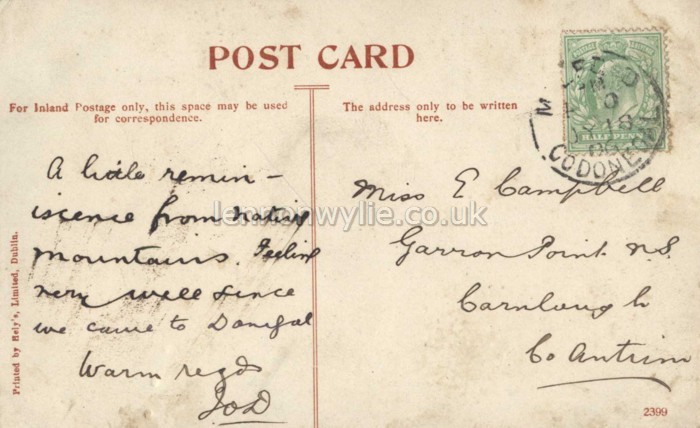 POST CARD
For Inland Postage only, this space may be used
for correspondence.
The address only to be written
here.
HALFPENNY
CO DONEGAL
A little remin-
iscence from native
mountains. Feeling
very well since
we came to Donegal
Warm regds
Miss E Campbell
Garron Point N.S.
Carnlough
Co Antrim
Printed by Hely's, Limited, Dublin.
2399
lennonwylie.co.uk